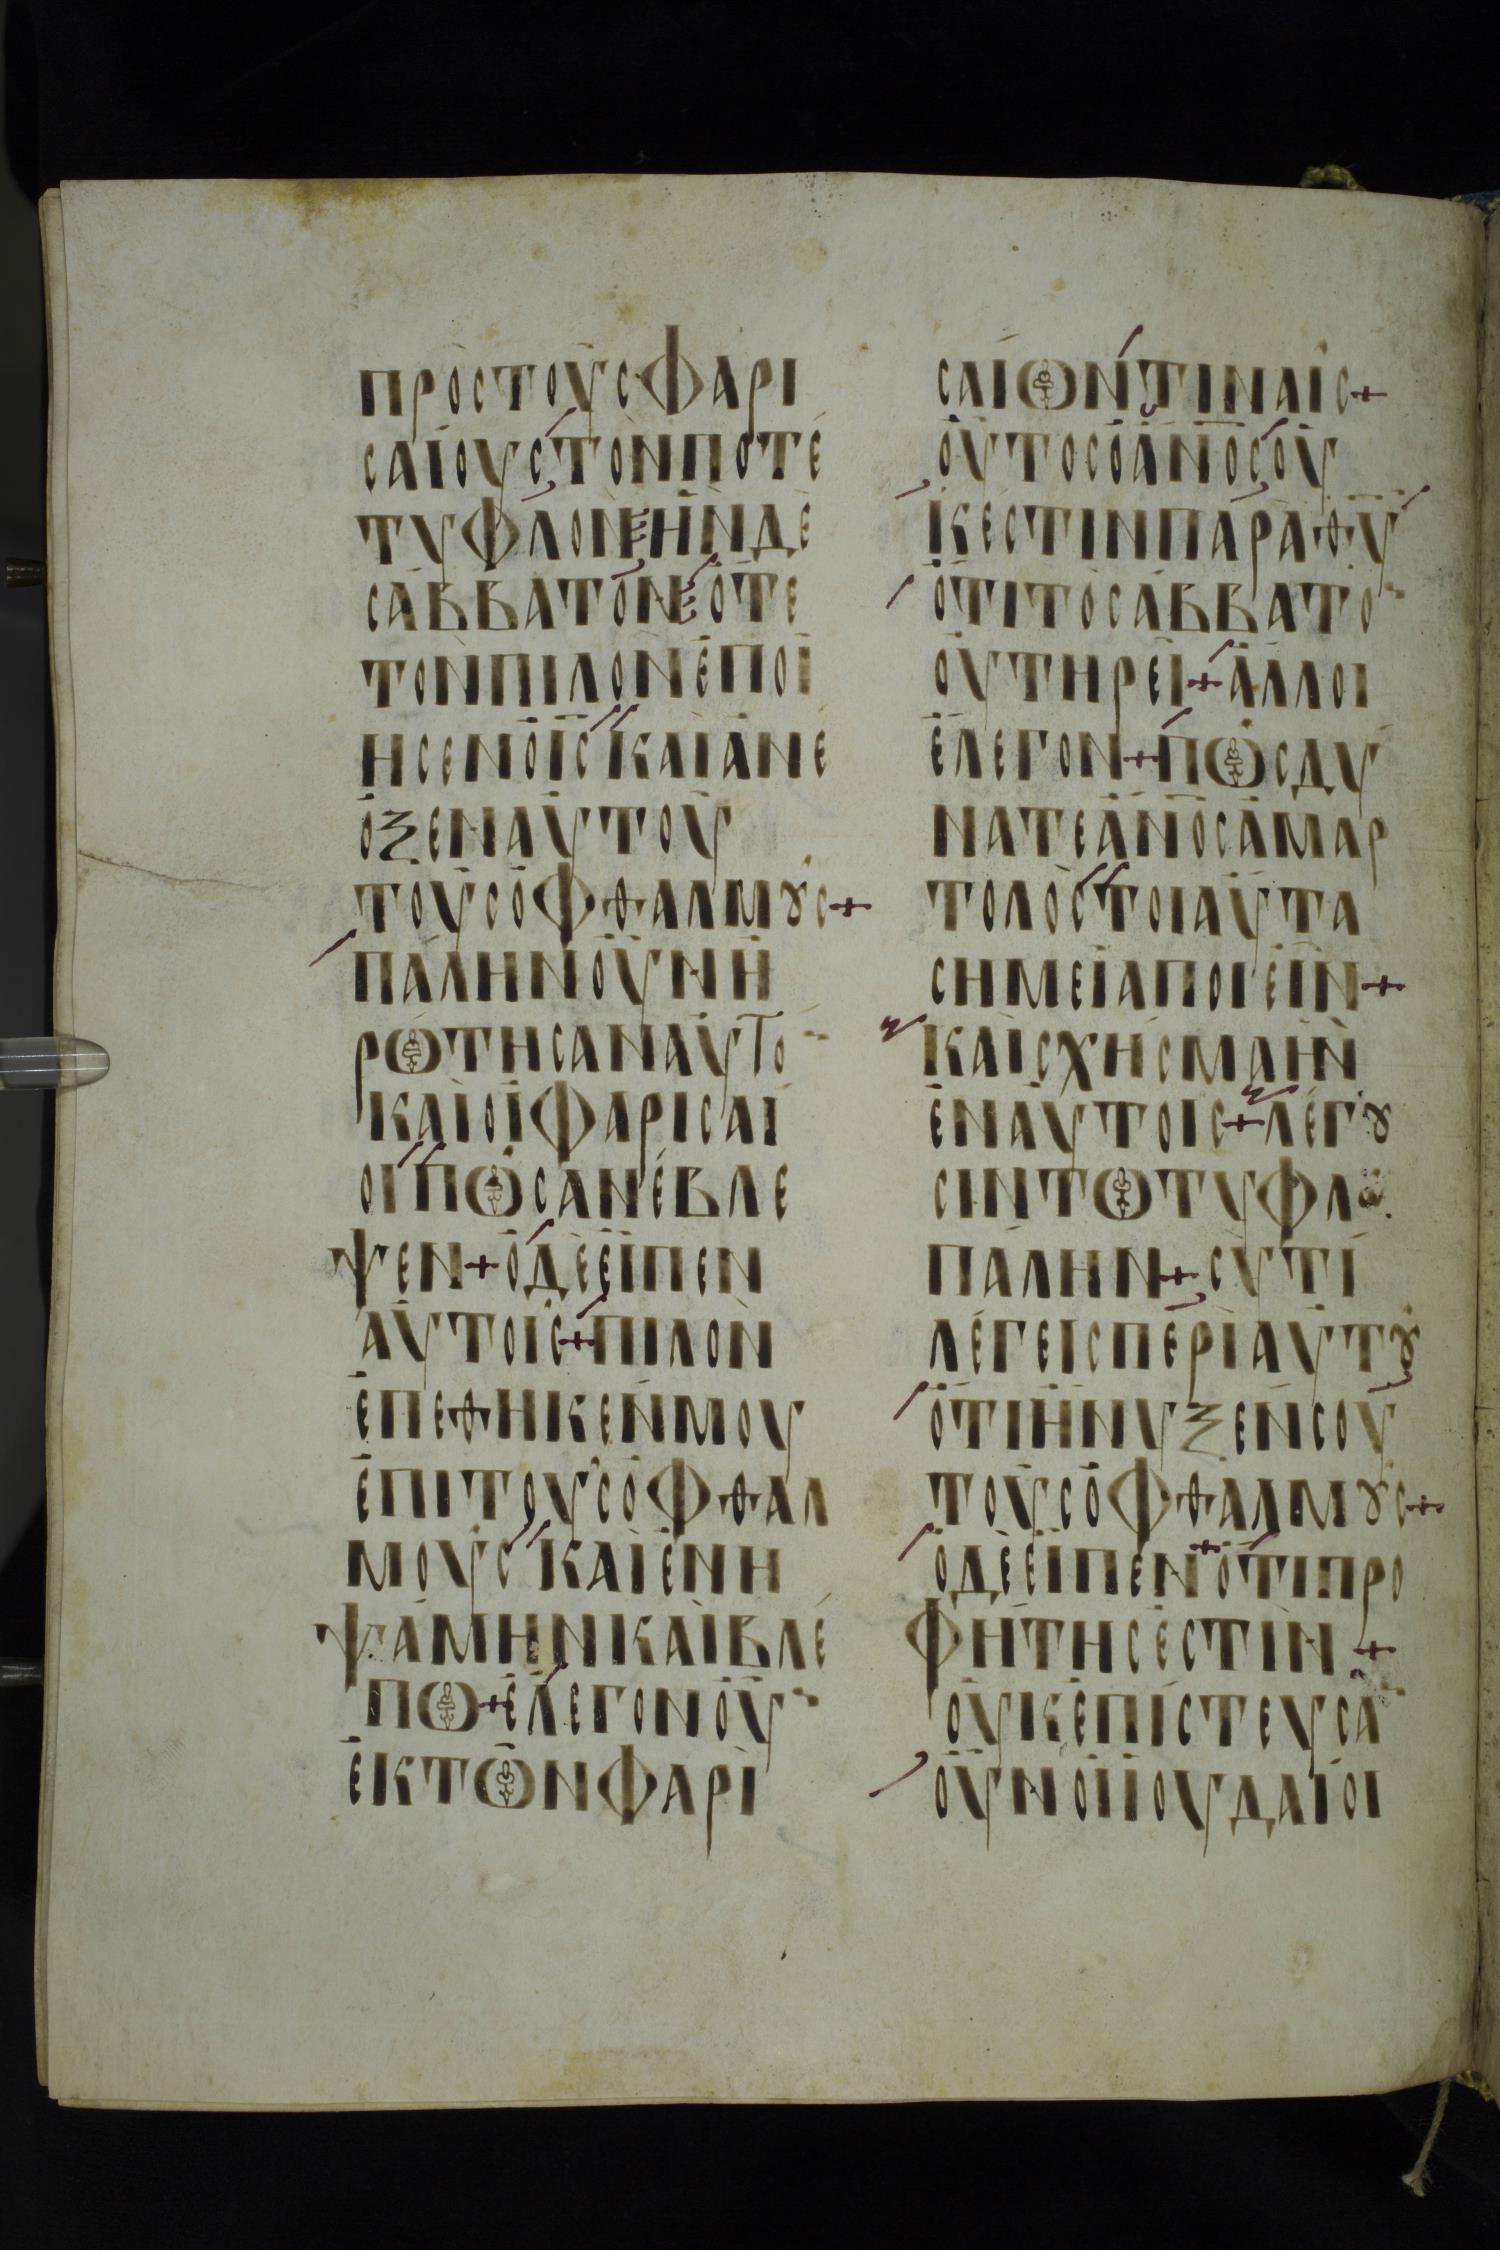 ΠΡΟΣΤΟΥΣΦΑΡΙ
ΣΑΙΟΥΣΤΟΝΠΟΤΕ
ΤΥΦΛΟΝΗΝΔΕ
ΣΑΒΒΑΤΟΝΟΤΕ
ΤΟΝΠΙΛΟΝΕΠΟΙ
ΗΣΕΝΟΙΣΚΑΙΑΝΕ
ΟΞΕΝΑΥΤΟΥ
ΤΟΥΣΟΦΘΑΛΜȣΣ+
ΠΑΛΗΝΟΥΝΗ
ΡΩΤΗΣΑΝΑΥΤΟ
ΚΑΙΟΙΦΑΡΙΣΑΙ
ΟΙΠΩΣΑΝΕΒΛΕ
ΨΕΝ+ΟΔΕΕΙΠΕΝ
ΑΥΤΟΙΣ+ΠΙΛΟΝ
ΕΠΕΘΗΚΕΝΜΟΥ
ΕΠΙΤΟΥΣΟΦΘΑΛ
ΜΟΥΣΚΑΙΕΝΗ
ΨΑΜΗΝΚΑΙΒΛΕ
ΠΩ+ΕΛΕΓΟΝΟΥ
ΕΚΤΩΝΦΑΡΙ
ΣΑΙΩΝΤΙΝΑΙΣ+
ΟΥΤΟΣΟΑΝΟΣΟΥ
ΚΕΣΤΙΝΠΑΡΑΘΥ
ΟΤΙΤΟΣΑΒΒΑΤΟ
ΟΥΤΗΡΕΙ+ΑΛΛΟΙ
ΕΛΕΓΟΝ+ΠΩΣΔΥ
ΝΑΤΕΑΝΟΣΑΜΑΡ
ΤΟΛΟΣΤΟΙΑΥΤΑ
ΣΗΜΕΙΑΠΟΙΕΙΝ+
ΚΑΙΣΧΗΣΜΑΗΝ
ΕΝΑΥΤΟΙΣ+ΛΕΓȣ
ΣΙΝΤΩΤΥΦΛΩ
ΠΑΛΗΝ+ΣΥΤΙ
ΛΕΓΕΙΣΠΕΡΙΑΥΤȣ
ΟΤΙΗΝΥΞΕΝΣΟΥ
ΤΟΥΣΟΦΘΑΛΜȣΣ+
ΟΔΕΕΙΠΕΝ+ΟΤΙΠΡΟ
ΦΗΤΗΣΕΣΤΙΝ+
ΟΥΚΕΠΙΣΤΕΥΣΑ
ΟΥΝΟΙΙΟΥΔΑΙΟΙ